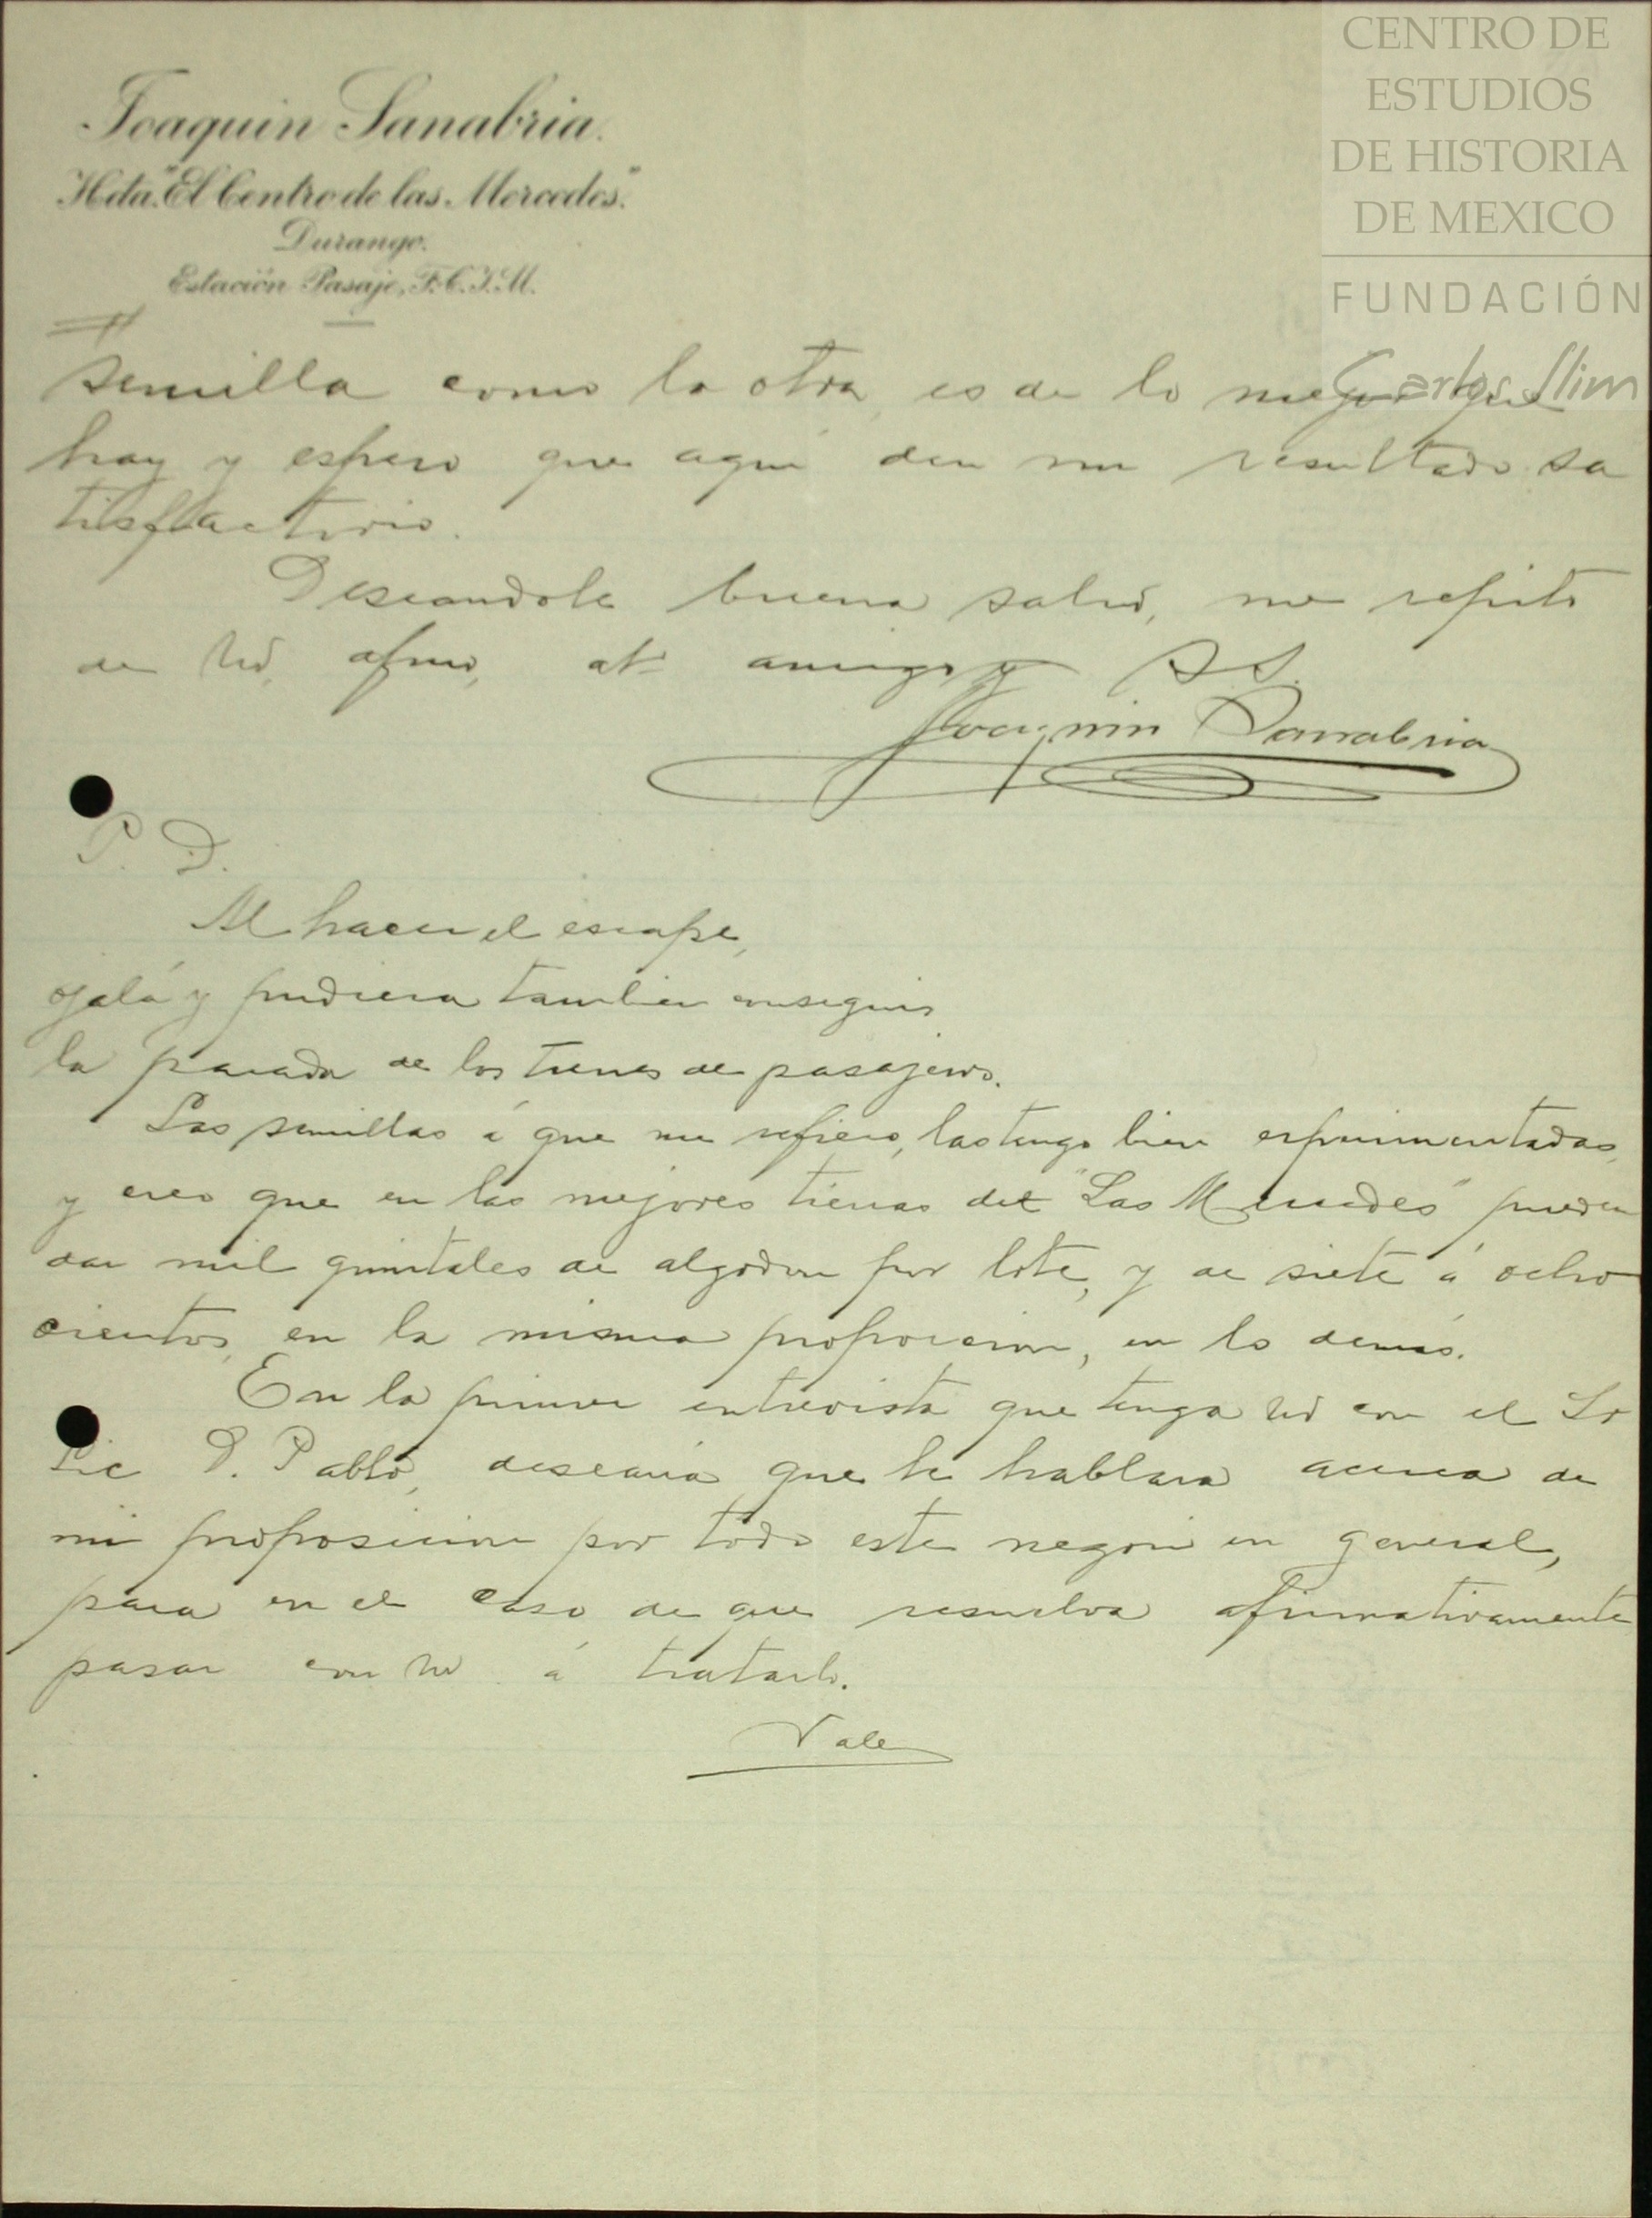 CENTRO DE
ESTUDIOS
DE HISTORIA
DE MEXICO
FUNDACIÓN
Carlos Slim
Joaquin Sanabria.
Hda. "El Centro de las Mercedes".
Durango.
Estación Pasaje, F.C.I.M.
semilla como la otra, es de lo mejor que
hay y espero que aqui den un resultado sa
tisfactorio.
Deseandole buena salud, me repito
de Ud, afmo, at amigo y S S.
Joaquin Sanabria
P. D.
Al hacer el escape,
ojalá y pudiera tambien conseguir
la parada de los trenes de pasajeros.
Las semillas á que me refiero, las tengo bien esperimentadas,
y creo que en las mejores tierras de "Las Mercedes" pueden
dar mil quintales de algodon por lote, y de siete á ocho
cientos, en la misma proporcion, en lo demás.
En la primer entrevista que tenga Ud con el Sr
Lic D. Pablo, desearia que le hablara acerca de
mi proposicion por todo este negocio en general,
para en el caso de que resuelva afirmativamente
pasar con Ud á tratarlo.
Vale